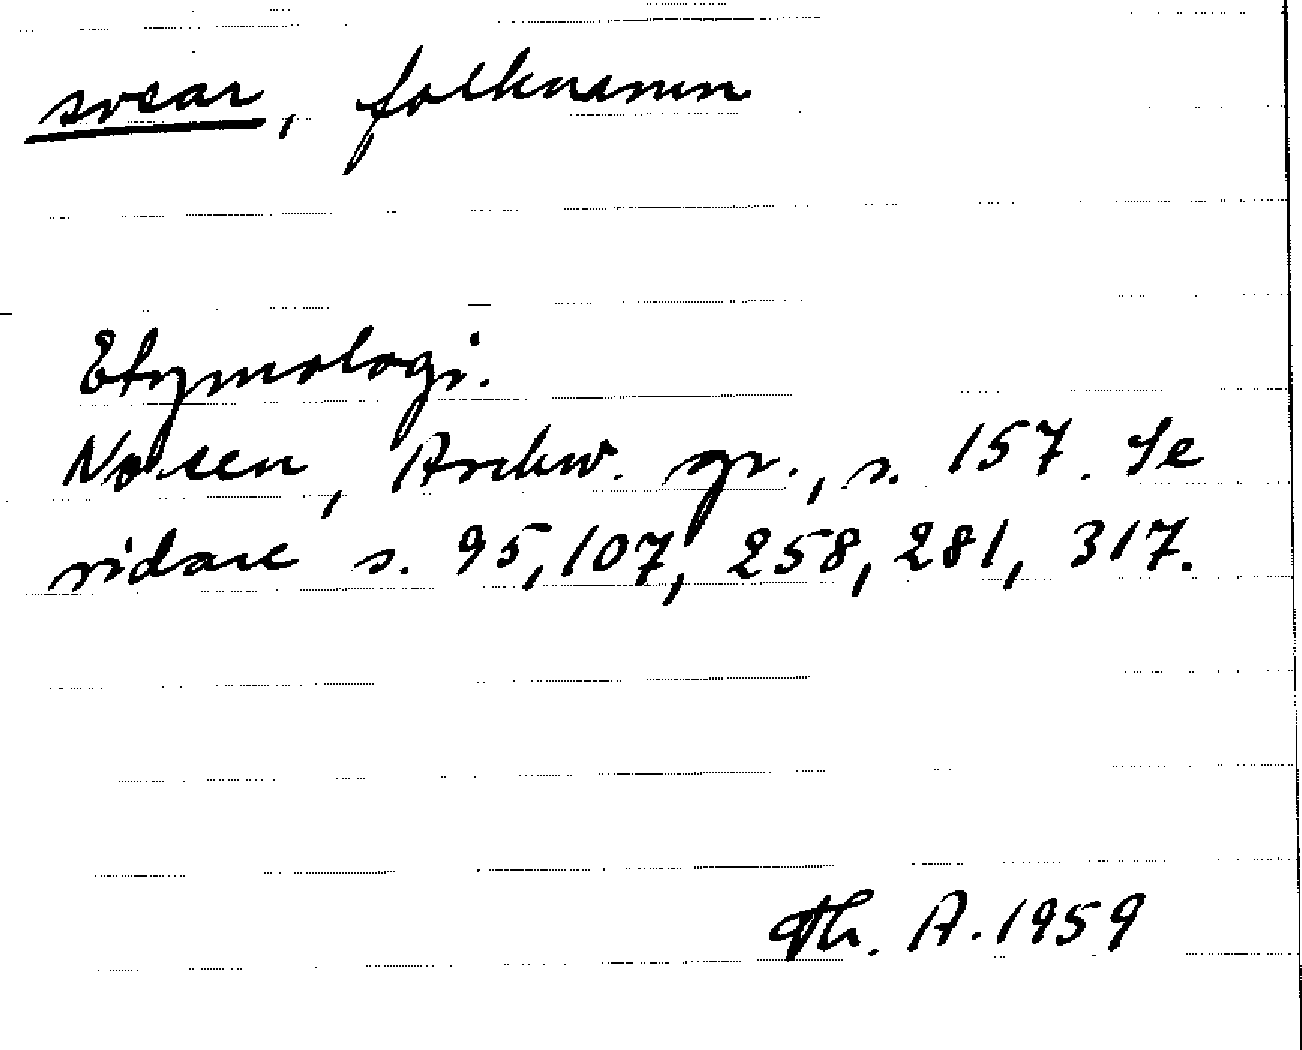 svear, folknamn
Etymologi.
Noreen, Aschw. gr., s. 157. Se
vidare s. 95, 107, 258, 281, 317.
Th. A. 1959